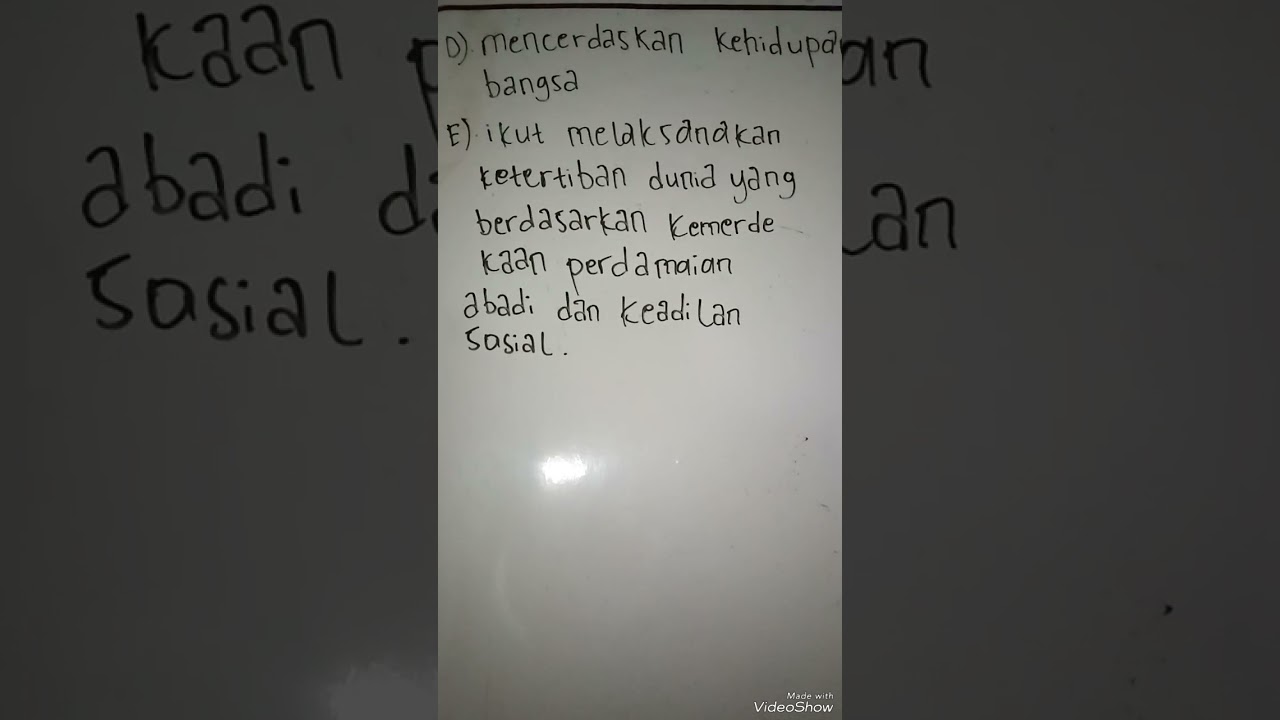 D). mencerdaskan kehidupan
bangsa
E). ikut melaksanakan
ketertiban dunia yang
berdasarkan kemerde
kaan perdamaian
abadi dan keadilan
sosial.
Made with
VideoShow